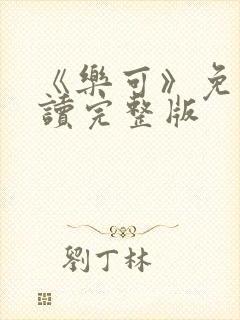 《樂可》免
讀完整版
劉丁林